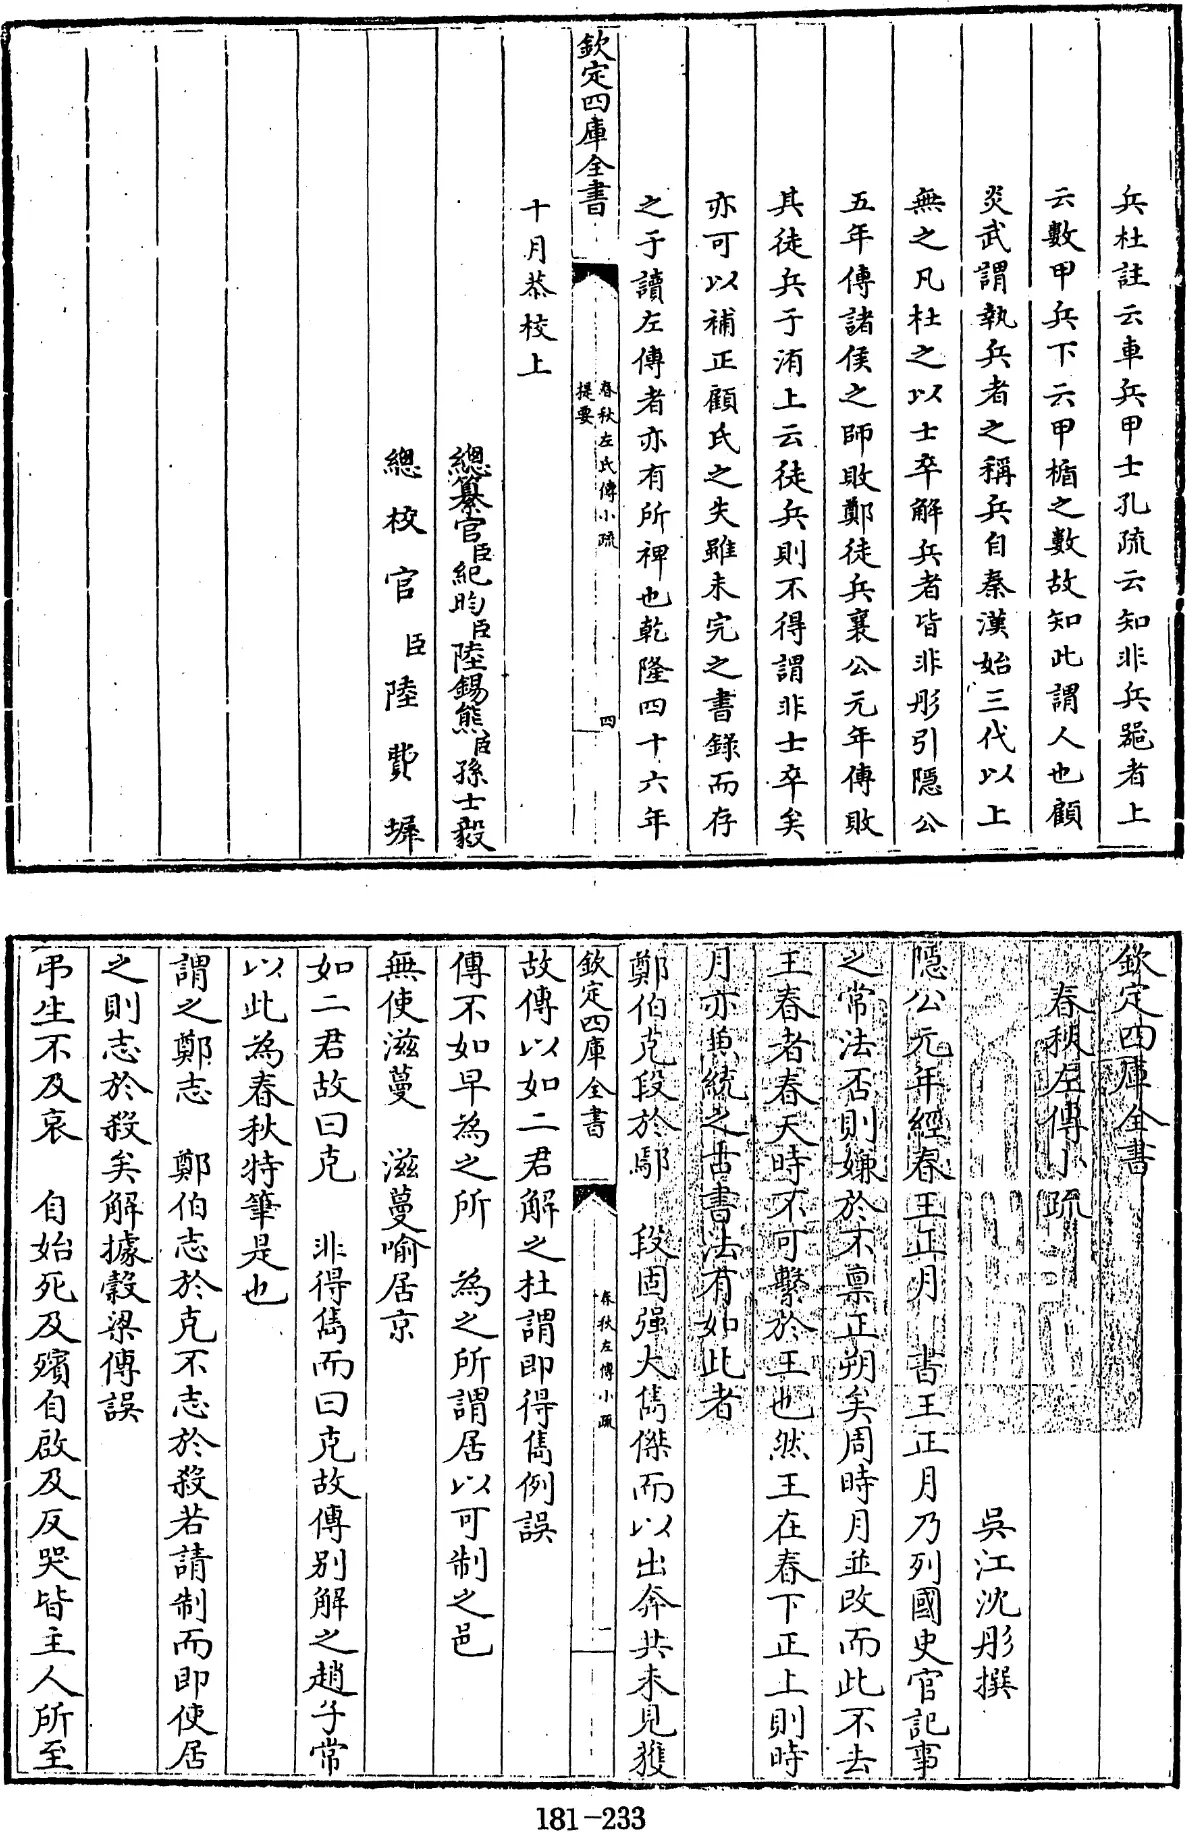 兵杜註云車兵甲士孔疏云知非兵器者上
云數甲兵下云甲楯之數故知此謂人也顧
炎武謂執兵者之稱兵自秦漢始三代以上
無之凡杜之以士卒解兵者皆非彤引隱公
五年傳諸侯之師敗鄭徒兵襄公元年傳敗
其徒兵于洧上云徒兵則不得謂非士卒矣
亦可以補正顧氏之失雖未完之書錄而存
之于讀左傳者亦有所裨也乾隆四十六年
欽定四庫全書
春秋左氏傳小疏
提要
四
十月恭校上
總纂官臣紀昀臣陸錫熊臣孫士毅
總校官臣陸費墀
欽定四庫全書
春秋左傳小疏
吳江沈彤撰
隱公元年經春王正月 書王正月乃列國史官記事
之常法否則嫌於不禀正朔矣周時月並改而此不去
王春者春天時不可繫於王也然王在春下正上則時
月亦兼統之古書法有如此者
鄭伯克段於鄢 段固强大雋傑而以出奔共未見獲
欽定四庫全書
春秋左傳小疏
一
故傳以如二君解之杜謂即得雋例誤
傳不如早為之所 為之所謂居以可制之邑
無使滋蔓 滋蔓喻居京
如二君故曰克 非得雋而曰克故傳别解之趙子常
以此為春秋特筆是也
謂之鄭志 鄭伯志於克不志於殺若請制而即使居
之則志於殺矣解據穀梁傳誤
弔生不及哀 自始死及殯自啟及反哭皆主人所至
181-233